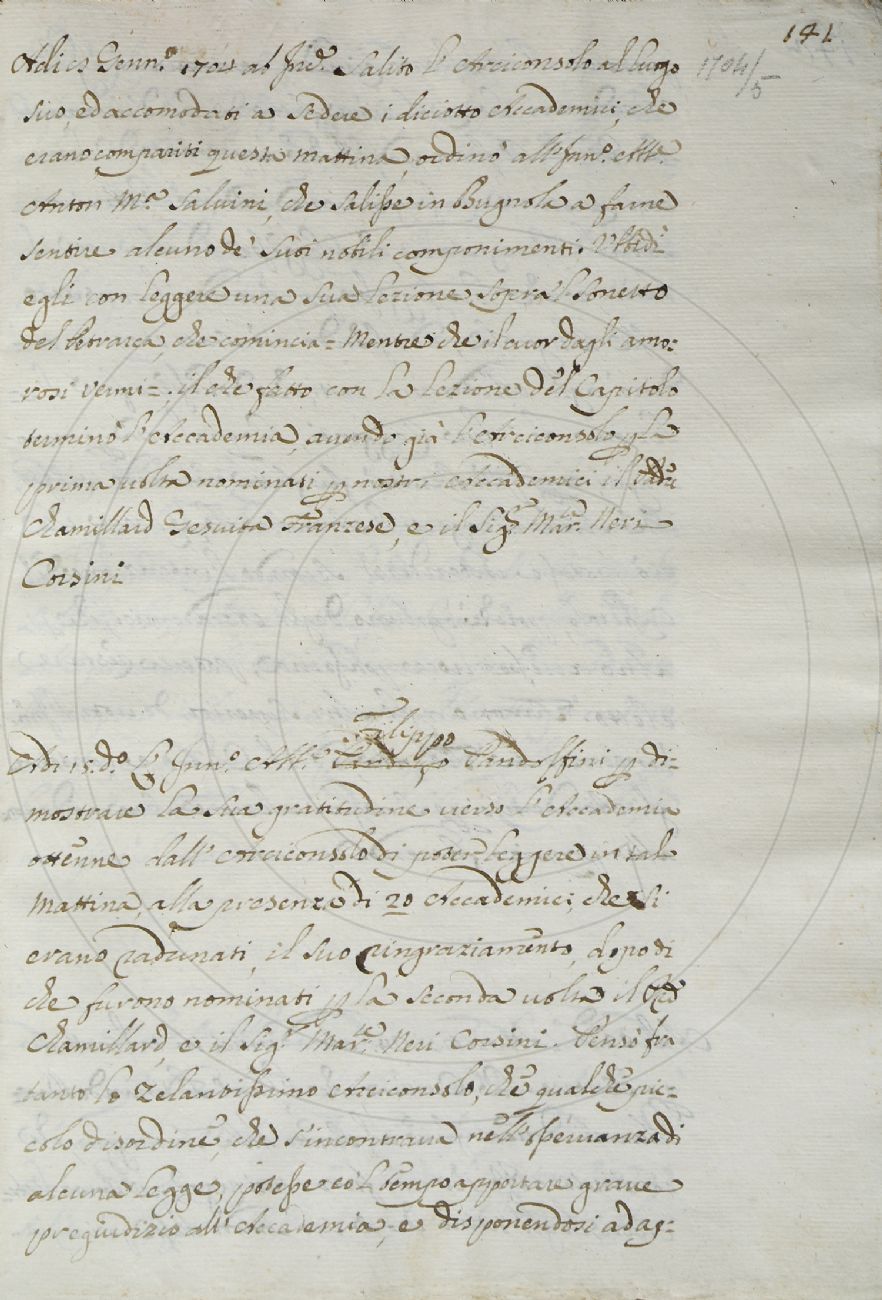 141
Adi 8 Genn.º 1704 ab Inc.e Salito l'Arciconsolo al luogo
1704/5
suo, ed accomodatisi a sedere i diciotto Accademici, che
erano compariti questa mattina, ordinò all' Inn.º Abb.e
Anton M.a Salvini, che salisse in Bugnola a farne
sentire alcuno de' suoi nobili componimenti. Ubbidì
egli con leggere una sua lezione sopra 'l sonetto
del Petrarca, che comincia = Mentre che il cuor dagli amo:
rosi vermi =. il che fatto con la lezione del Capitolo
terminò l'Accademia, avendo già l'Arciconsolo p la
prima volta nominati p nostri Accademici il Padre
Chamillard Gesuita Franzese, e il Sig.r Mar.se Neri
Corsini
Adi 15. d.º L' Inn.º Abb.e Filippo Pandolfini p di=
mostrare la sua gratitudine verso l'Accademia
ottenne dall' Arciconsolo di poter leggere in tal
mattina, alla presenza di 20 Accademici, che si
erano radunati, il suo ringraziamento, dopo di
che furono nominati p la seconda volta il Pre
Chamillard, e il Sig.r Mar.se Neri Corsini. Pensò fra
tanto lo zelantissimo Arciconsolo, che qualche pic=
colo disordine, che s'incontrava nell'osservanza di
alcuna legge, potesse col tempo apportare grave
pregiudizio all' Accademia, e disponendosi ad ag=